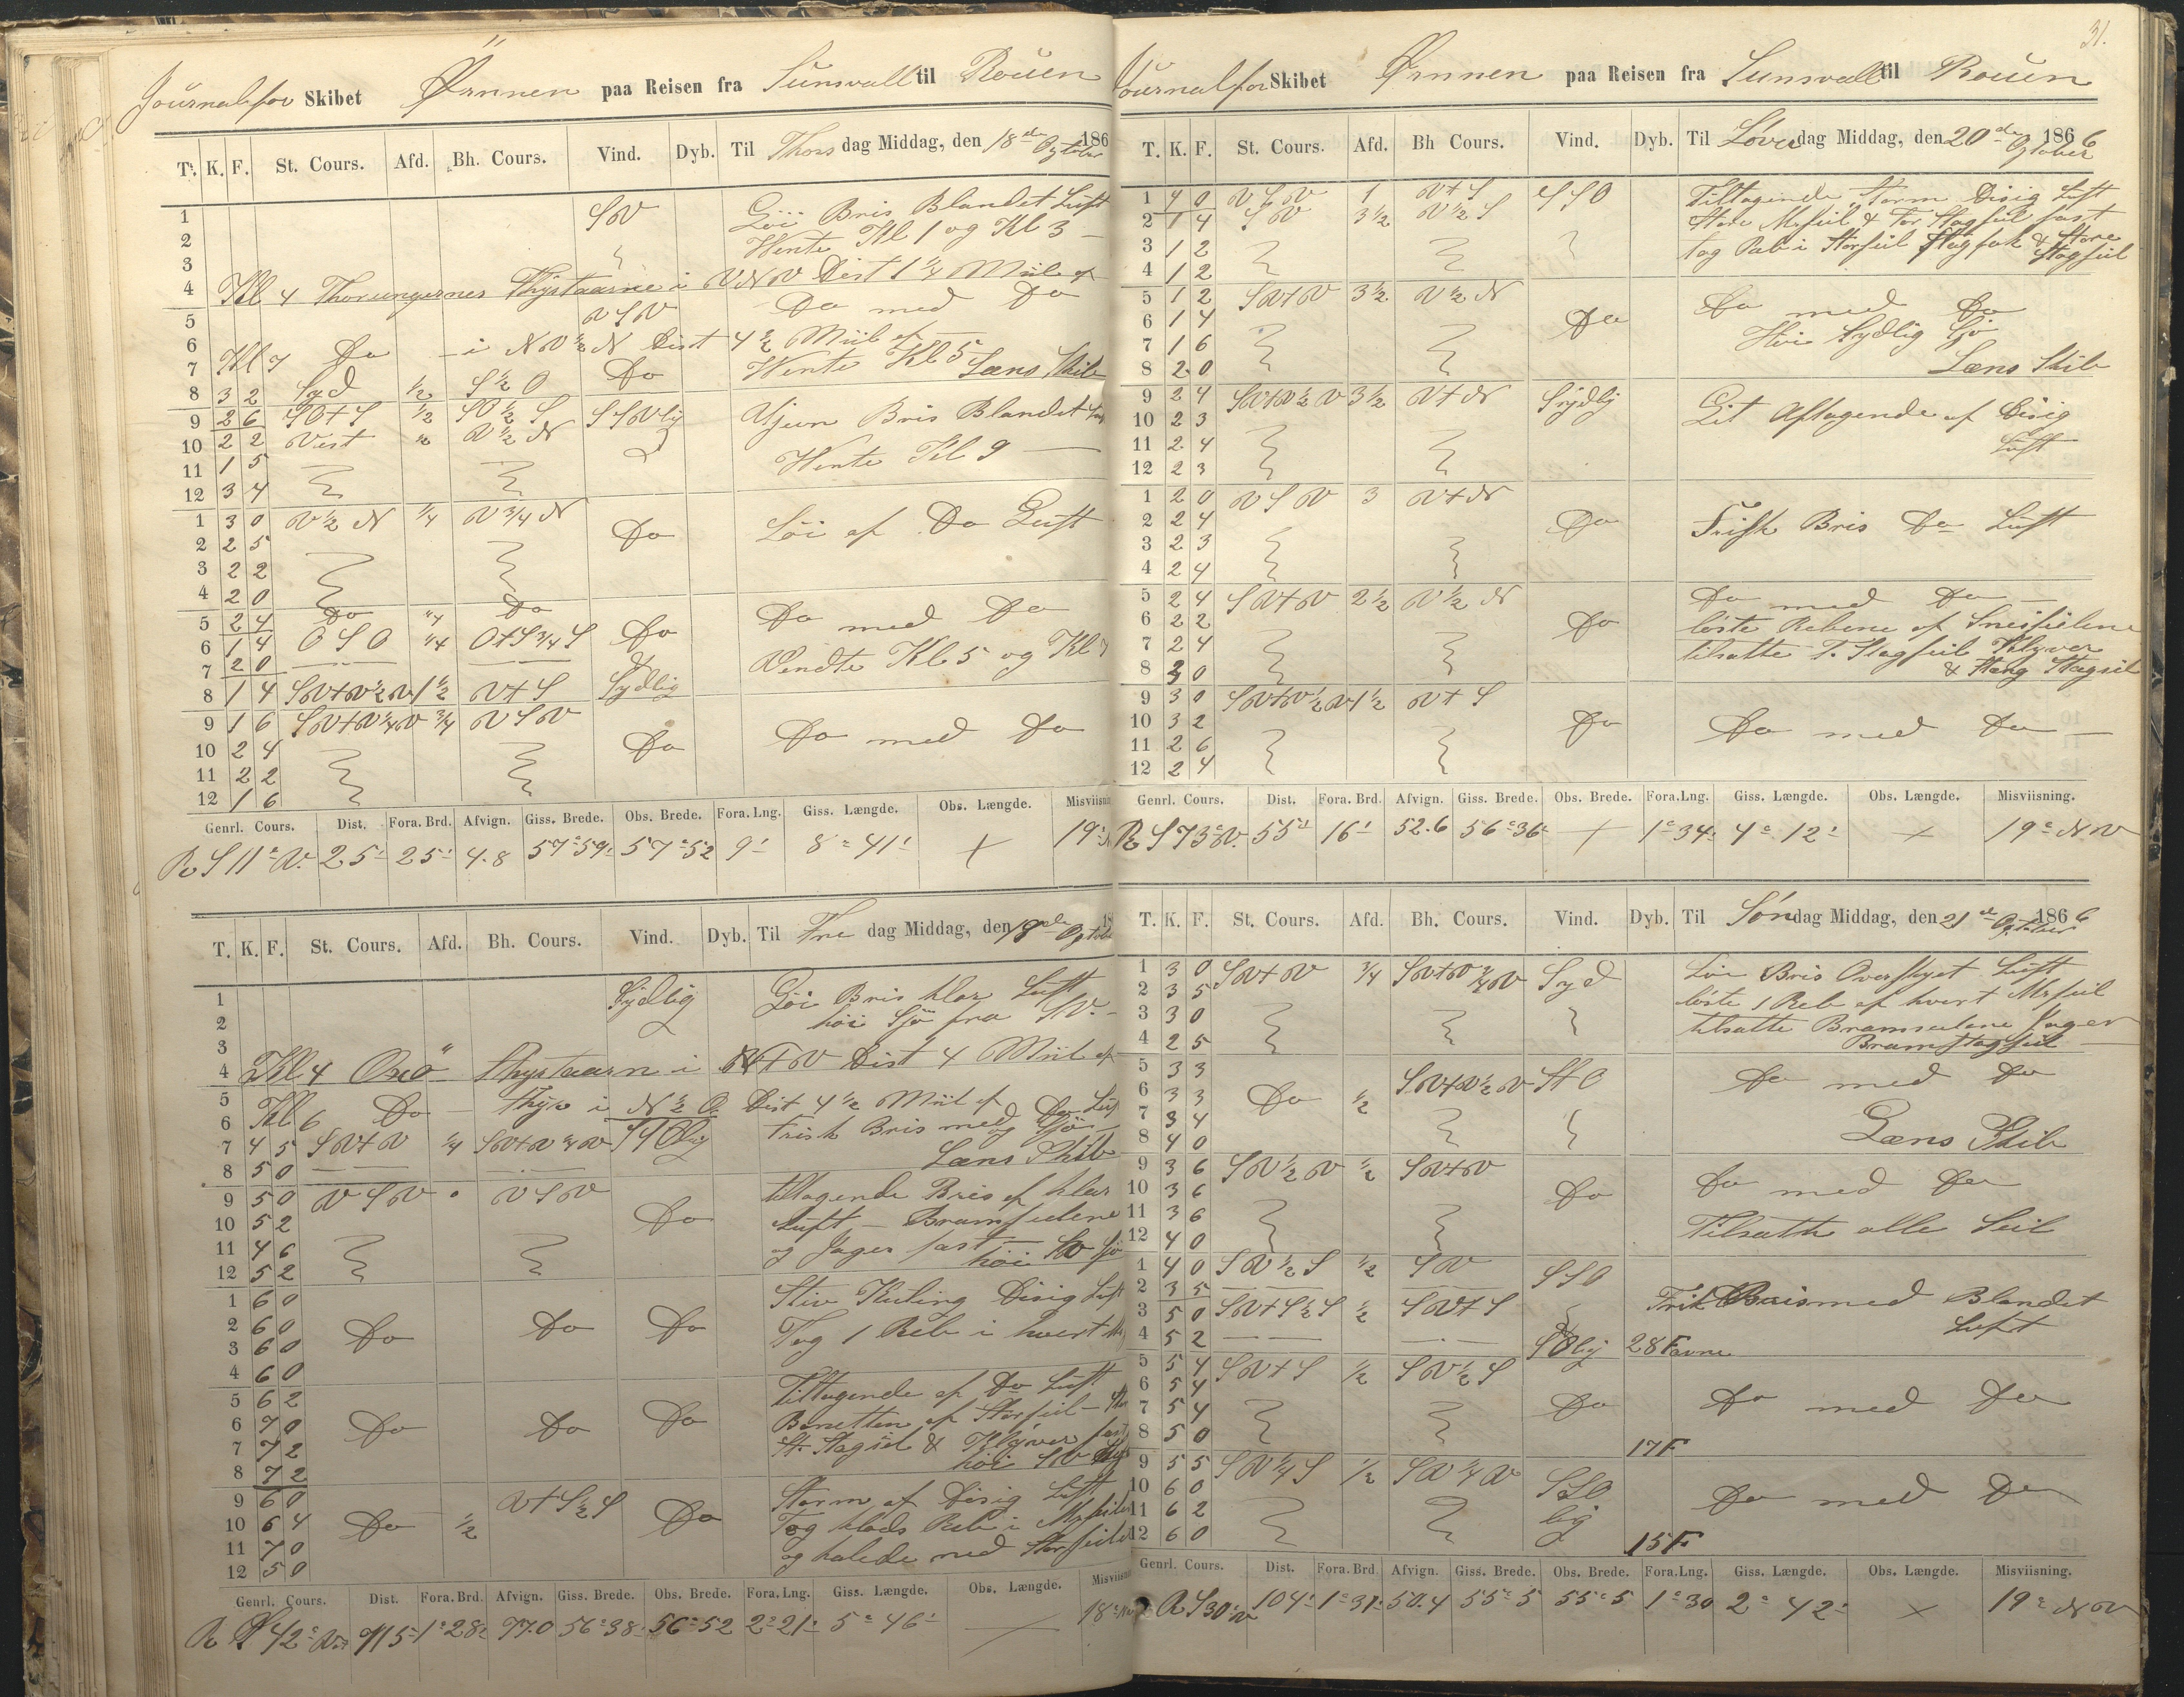 Journal for Skibet Ørnnen paa Reisen fra Sunsvall til Roüen
T. K. F. St. Cours. Afd. Bh. Cours. Vind. Dyb. Til Thorsdag Middag, den 18de Ogtober 186
1 SV Löi Bris Blandet Luft
2 Wente Kl 1 og Kl 3 —
3
4 Kl 4 Thorungernes Fhystaarne i VNV Dist 1 1/4 Miil af
5 VSV Do med Do
6
7 Kl 7 Do — i NV 1/2 N Dist 4 1/2 Miil af —
Wente Kl 5 Læns Skib
8 3 2 Syd 1/2 S 1/2 O Do
9 2 6 SO+S 1/2 SO 1/2 S SSVlig Bris Blandet Luft
10 2 2 Vest " V 1/2 N
11 1 5 Wente Kl 9 —
12 3 4
1 3 0 V 1/2 N 1/4 V 3/4 N
2 2 5 Do Löi af Do Luft
3 2 2
4 2 0
5 2 4 Do 1/4 Do
6 1 4 OSO 1/4 O+S 3/4 S Do Do med Do
7 2 0 — — Vendte Kl 5 og Kl 7
8 1 4 SV+V 1/2 V 1 1/2 V+S Sydlig
9 1 6 SV+V 1/4 V 3/4 VSV
10 2 4 Do Do med Do
11 2 2
12 1 6
Genrl. Cours. Dist. Fora. Brd. Afvign. Giss. Brede. Obs. Brede. Fora. Lng. Giss. Længde. Obs. Længde. Misviisning
R S 11° V. 25' 25' 4.8 57°59' 57°52 9' 8°41' + 19°
T. K. F. St. Cours. Afd. Bh. Cours. Vind. Dyb. Til Fredag Middag, den 19de Ogtober
1 Sydlig Löi Bris klar Luft
2 höi Sjö fra SV. —
3
4 Kl 4 Oxö Fhystaarn i N+V Dist 4 Miil af
5
6 Kl 6 Do — Fhyr i N 1/2 O. Dist 4 1/2 Miil af
7 4 5 SV+V 1/4 SV+V 1/4 V Frisk Bris med Do Luft og Sjö
8 5 0 — — Læns Skib
9 5 0 VSV " VSV tiltagende Bris af klar
10 5 2 Do Luft — Bramseilene
11 4 6 og Jager fast —
12 5 2 höi SV Sjö
1 6 0 Stiv Kuling Disig Luft
2 6 0 Do Do Do
3 6 0 Tog 1 Reb i hvert
4 6 0
5 6 2 Tiltagende af Do Luft
6 7 0 Do Do Do Bonetten af Storseil —
7 7 2 St. Stagseil & Klÿver fast
8 7 2 höi SV
9 6 0 V+S 1/2 S Storm af Disig Luft
10 6 4 Do 1/2 Do Tog klods Reb i Mrseilene
11 7 0 og halede ned Storseilet
12 5 0
Genrl. Cours. Dist. Fora. Brd. Afvign. Giss. Brede. Obs. Brede. Fora. Lng. Giss. Længde. Obs. Længde. Misviisning
R S 42° V 115' 1°28' 77.0 56°38' 56°52 2°21' 5°46' — 18°
31.
Journal for Skibet Ørnnen paa Reisen fra Sunsvall til Roüen
T. K. F. St. Cours. Afd. Bh Cours. Vind. Dyb. Til Löverdag Middag, den 20de Ogtober 1866
1 4 0 VSV 1 V+S SSO Tiltagende Storm Disig Luft
2 1 4 SV 3 1/2 V 1/2 S Store Mrseil & For Stagseil fast
3 1 2 tog Reb i Storseil Stagfok & Store
4 1 2 Stagseil
5 1 2 SV+V 3 1/2 V 1/2 N Do med Do
6 1 4 Do
7 1 6 Höi Sydlig Sjö
8 2 0 Læns Skib
9 2 4 SV+V 1/2 V 3 1/2 V+N Sydlig Lit Aftagende af Disig
10 2 3
11 2 4 Luft
12 2 3
1 2 0 VSV 3 V+N
2 2 4 Do Frisk Bris Do Luft
3 2 3
4 2 4
5 2 4 SV+V 2 1/2 V 1/2 N Do med Do —
6 2 2 Do löste Rebene af Sneiseilene
7 2 4 tilsatte F. Stagseil Klyver
8 3 0 & Stang Stagseil
9 3 0 SV+V 1/2 V 1 1/2 V+S
10 3 2 Do Do med Do —
11 2 6
12 2 4
Genrl. Cours. Dist. Fora. Brd. Afvign. Giss. Brede. Obs. Brede. Fora. Lng. Giss. Længde. Obs. Længde. Misviisning.
R S 73° V. 55' 16' 52.6 56°36' + 1°34' 4°12' + 19° NV
T. K. F. St. Cours. Afd. Bh. Cours. Vind. Dyb. Til Söndag Middag, den 21de Ogtober 1866
1 3 0 SV+V 3/4 SV+V 3/4 V Syd Löi Bris Overskyet Luft
2 3 5 löste 1 Reb af hvert Mrseil
3 3 0 tilsatte Bramseilene Jager
4 2 5 Bramstagseil —
5 3 3 SV+V 1/2 V S+O Do med Do
6 3 3 Do 1/2
7 3 4 Læns Skib
8 4 0
9 3 6 SV 1/2 V 1/2 SV+V
10 3 6 Do Do med Do
11 3 6 Tilsatte alle Seil
12 4 0
1 4 0 SV 1/2 S 1/2 SV SSO
2 3 5 — — Frisk Bris med Blandet
3 5 0 SV+S 1/2 S 1/2 SV+S Luft
4 5 2 — — SOlig 28 Favne
5 5 4 SV+S 1/2 SV 1/2 S
6 5 4 Do Do med Do
7 5 4
8 5 0 17 F
9 5 5 SV 1/4 S 1/2 SV 1/4 V SSO
10 6 0 lig Do med Do
11 6 2
12 6 0 15 F
Genrl. Cours. Dist. Fora. Brd Afvign. Giss. Brede. Obs. Brede. Fora. Lng. Giss. Længde. Obs. Længde. Misviisning.
R S 30° V 104' 1°31' 50.4 55°5 55°5 1°30 2°42' + 19° NV